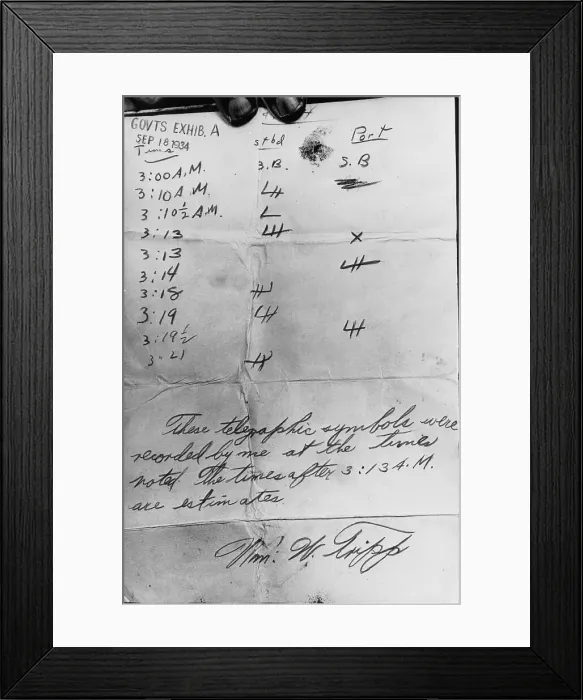 GOVTS EXHIB. A
SEP 18 1934
Time stbd Port
3:00 A.M. S.B. S.B
3:10 A.M.
3:10½ A.M.
3:13
3:13 X
3:14
3:18
3:19
3:19½
3:21
These telegraphic symbols were
recorded by me at the times
noted. The times after 3:13 A.M.
are estimates.
Wm. W. Tripp